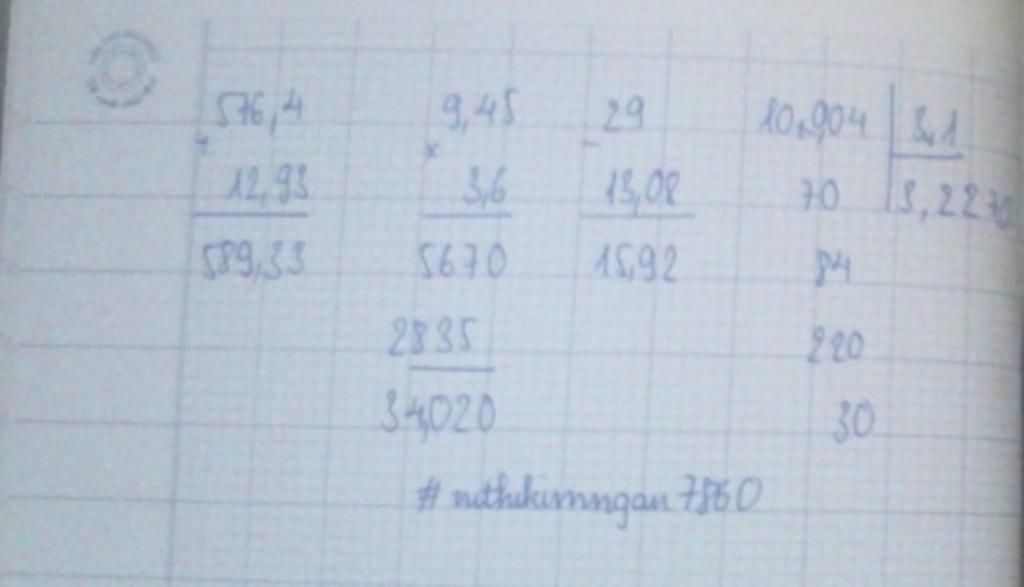 576,4 9,45 29 10,904 3,1
+ × −
12,93 3,6 13,08 70 3,2270
589,33 5670 15,92 84
2835 220
34,020 30
# 7860